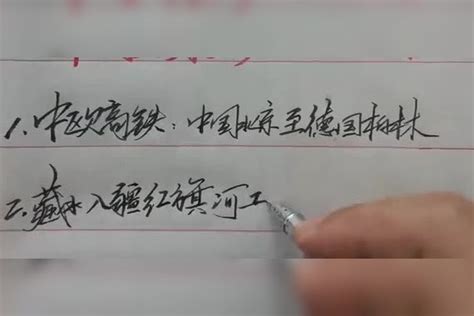 1.中欧高铁：中国北京至德国柏林
二.藏水入疆红旗河工